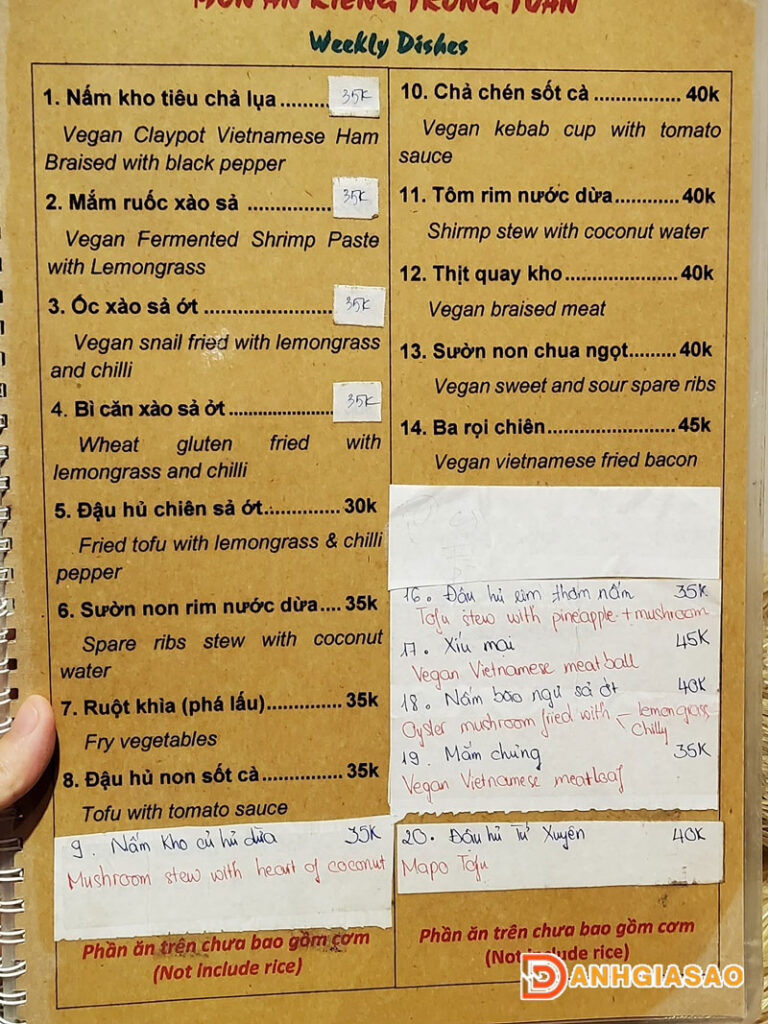 MÓN ĂN RIÊNG TRONG TUẦN
Weekly Dishes
1. Nấm kho tiêu chả lụa .......... 35K
Vegan Claypot Vietnamese Ham
Braised with black pepper
2. Mắm ruốc xào sả ............... 35K
Vegan Fermented Shrimp Paste
with Lemongrass
3. Ốc xào sả ớt ....................... 35K
Vegan snail fried with lemongrass
and chilli
4. Bì căn xào sả ởt .................... 35K
Wheat gluten fried with
lemongrass and chilli
5. Đậu hủ chiên sả ớt.............. 30k
Fried tofu with lemongrass & chilli
pepper
6. Sườn non rim nước dừa.... 35k
Spare ribs stew with coconut
water
7. Ruột khìa (phá lấu).............. 35k
Fry vegetables
8. Đậu hủ non sốt cà............... 35k
Tofu with tomato sauce
9. Nấm kho củ hủ dừa 35K
Mushroom stew with heart of coconut
Phần ăn trên chưa bao gồm cơm
(Not include rice)
10. Chả chén sốt cà ............... 40k
Vegan kebab cup with tomato
sauce
11. Tôm rim nước dừa............ 40k
Shirmp stew with coconut water
12. Thịt quay kho.................... 40k
Vegan braised meat
13. Sườn non chua ngọt......... 40k
Vegan sweet and sour spare ribs
14. Ba rọi chiên....................... 45k
Vegan vietnamese fried bacon
16. Đậu hủ rim thơm nấm 35K
Tofu stew with pineapple + mushroom
17. Xíu mại 45K
Vegan Vietnamese meatball
18. Nấm bào ngư sả ớt 40K
Oyster mushroom fried with lemongrass
chilly
19. Mắm chưng 35K
Vegan Vietnamese meatloaf
20. Đậu hủ Tứ Xuyên 40K
Mapo Tofu
Phần ăn trên chưa bao gồm cơm
(Not include rice)
DANHGIASAO